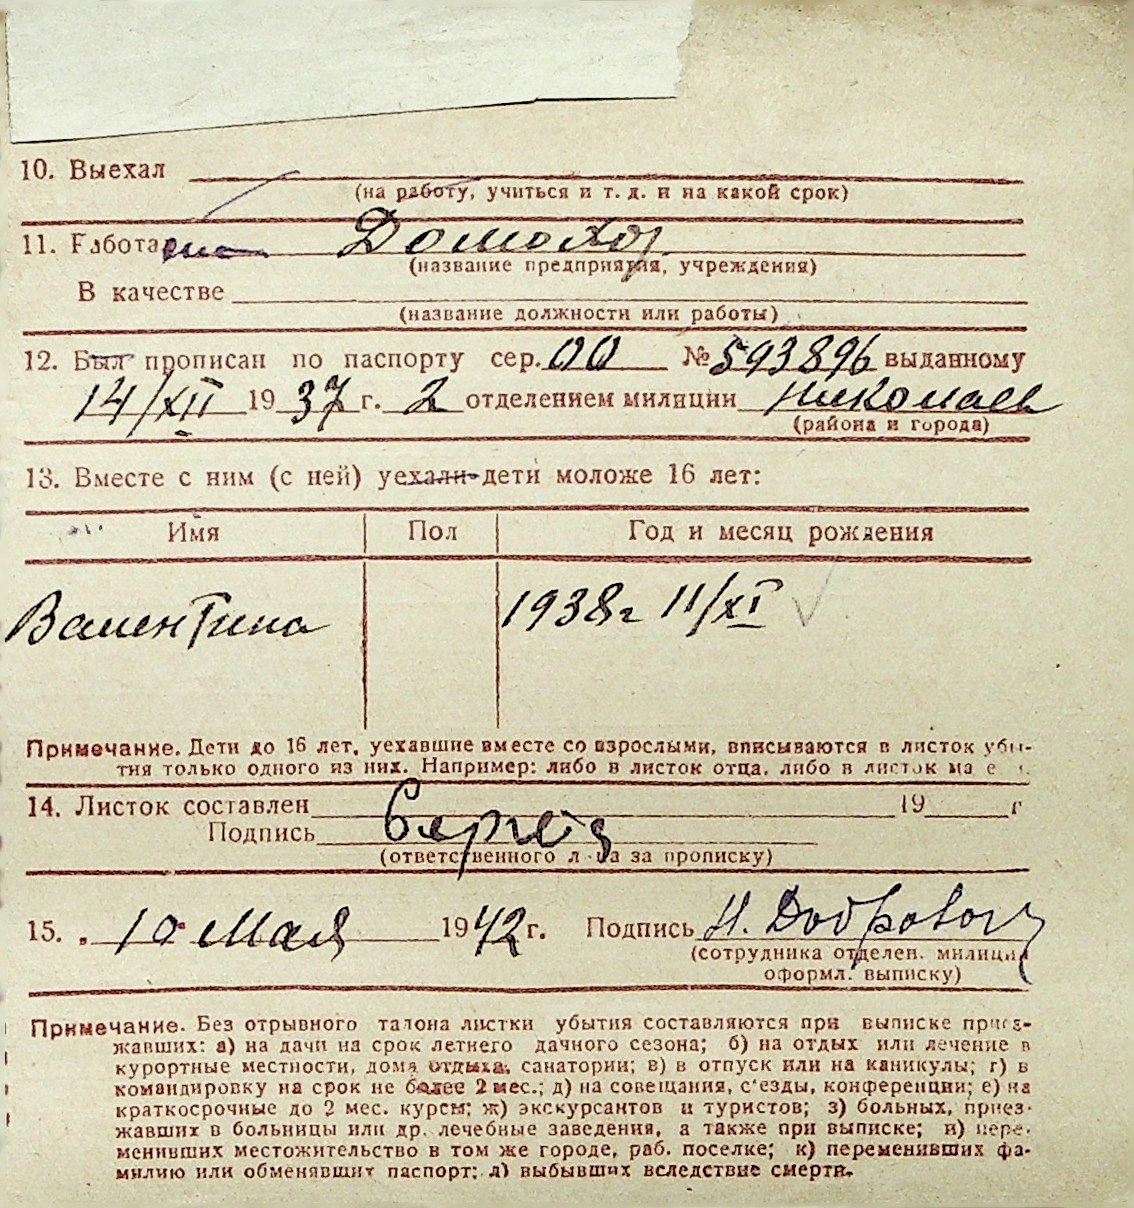 10. Выехал
(на работу, учиться и т. д. и на какой срок)
11. Работа Домохоз
(название предприятия, учреждения)
В качестве
(название должности или работы)
12. Был прописан по паспорту сер. 00 № 593896 выданному
14/XII 1937 г. 2 отделением милиции Николаев
(района и города)
13. Вместе с ним (с ней) уехали дети моложе 16 лет:
Имя Пол Год и месяц рождения
Валентина 1938 г 11/XI
Примечание. Дети до 16 лет, уехавшие вместе со взрослыми, вписываются в листок убы-
тия только одного из них. Например: либо в листок отца, либо в листок
14. Листок составлен 19 г
Подпись
(ответственного лица за прописку)
15. 10 Мая 1942 г. Подпись Н. Добровол
(сотрудника отделен. милиции
оформл. выписку)
Примечание. Без отрывного талона листки убытия составляются при выписке приез-
жавших: а) на дачи на срок летнего дачного сезона; б) на отдых или лечение в
курортные местности, дома отдыха, санатории; в) в отпуск или на каникулы; г) в
командировку на срок не более 2 мес.; д) на совещания, с'езды, конференции; е) на
краткосрочные до 2 мес. курсы; ж) экскурсантов и туристов; з) больных, приез-
жавших в больницы или др. лечебные заведения, а также при выписке; и) пере-
менивших местожительство в том же городе, раб. поселке; к) переменивших фа-
милию или обменявших паспорт; л) выбывших вследствие смерти.